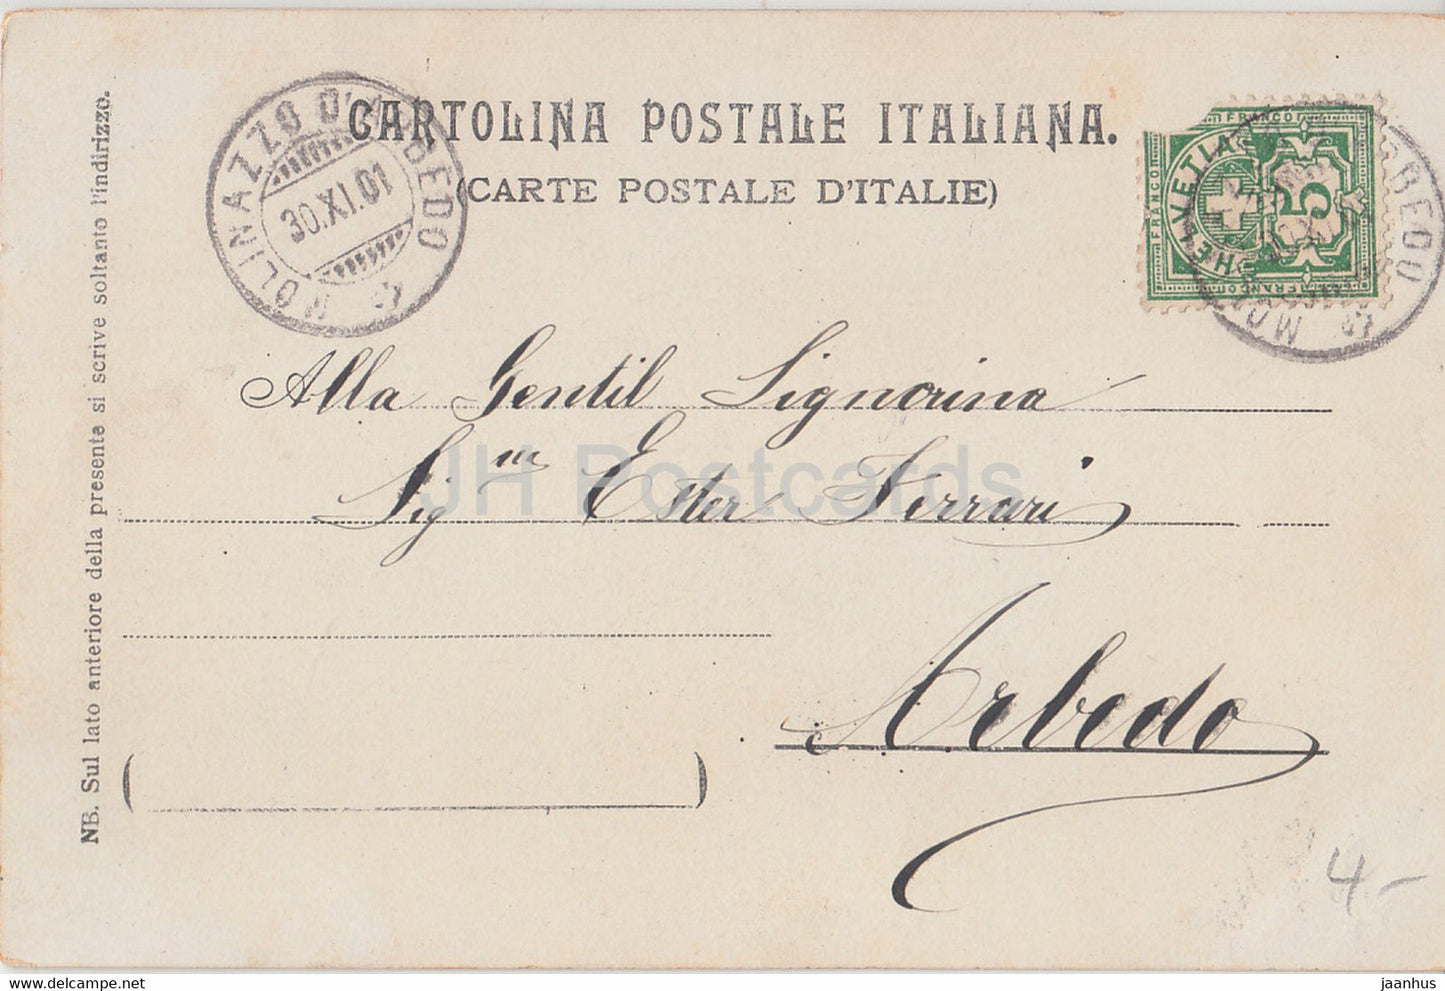 CARTOLINA POSTALE ITALIANA.
(CARTE POSTALE D'ITALIE)
MOLINAZZO D'ARBEDO
30.XI.01
FRANCO
HELVETIA
5
FRANCO
FRANCO
Alla Gentil Signorina
Sig na Ester Ferrari
Arbedo
NB. Sul lato anteriore della presente si scrive soltanto l'indirizzo.
JH Postcards
4-
jaanhus